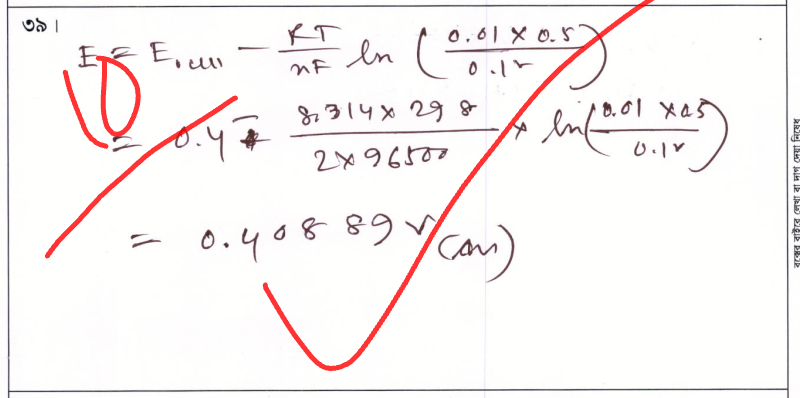 ৩৯।
E = E. - RT/nF ln (0.01 × 0.5 / 0.1²)
= 0.4 - 8.314 × 298 / 2 × 96500 × ln (0.01 × 0.5 / 0.1²)
= 0.40889 v (ans)
10
বক্সের বাইরে লেখা বা দাগ দেয়া নিষেধ